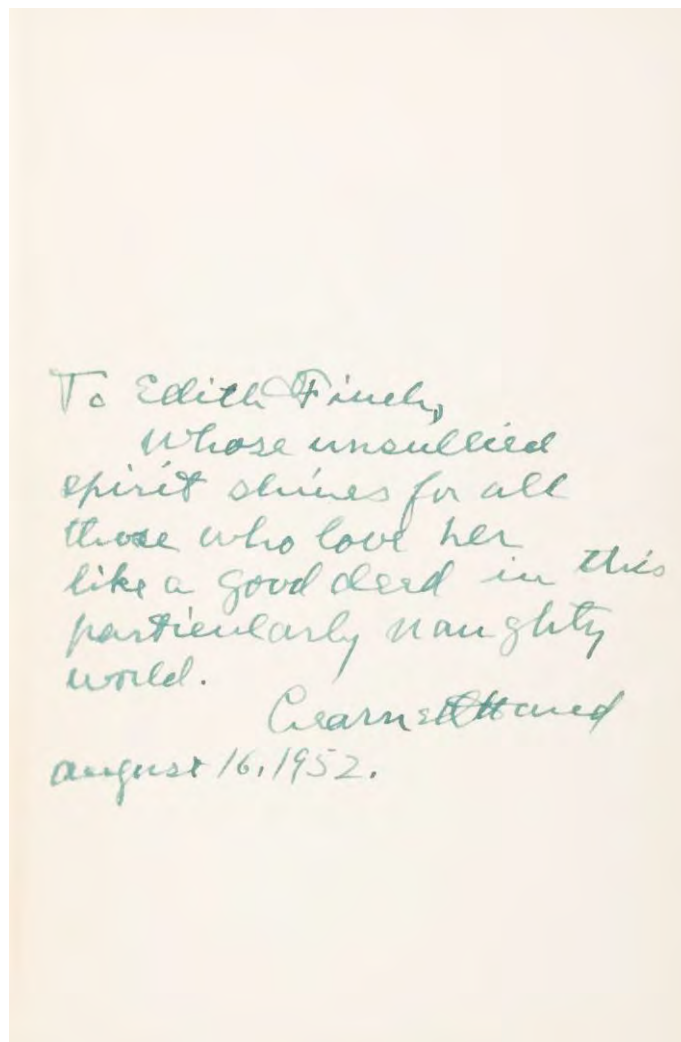 To Edith Finch,
whose unsullied
spirit shines for all
those who love her
like a good deed in this
particularly naughty
world.
Learned Hand
August 16, 1952.